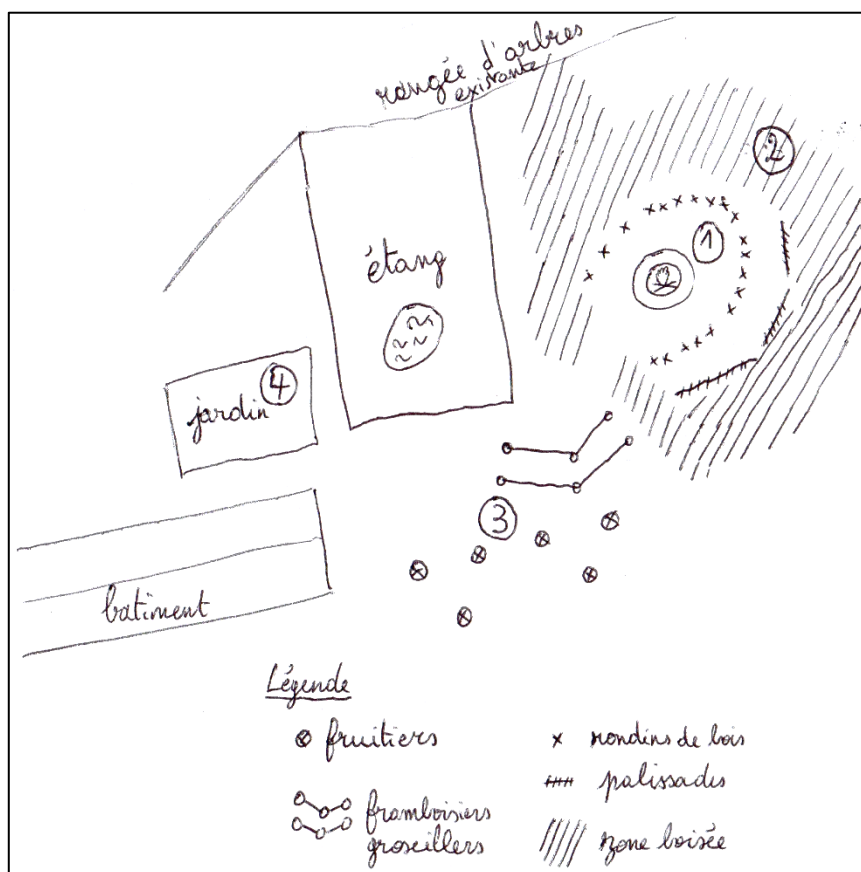 rangée d'arbres
existante
2
1
étang
jardin 4
3
bâtiment
Légende
fruitiers
framboisiers
groseillers
rondins de bois
palissades
zone boisée